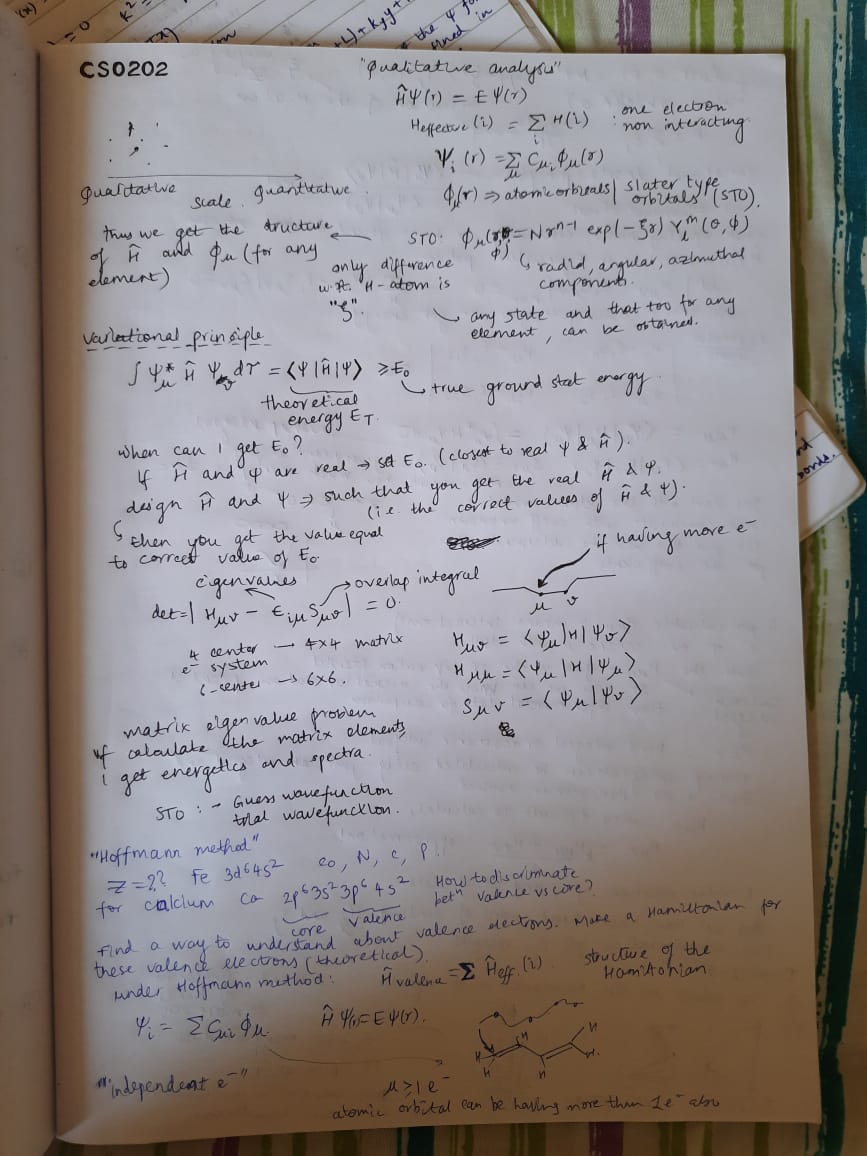 CS0202
"Qualitative analysis"
ĤΨ(r) = EΨ(r)
Heffective (i) = Σ_i H(i) : one electron non interacting
Ψ_i (r) = Σ_μ C_μi Φ_μ(r)
Qualitative scale. Quantitative.
Φ_i(r) ⇒ atomic orbitals | slater type orbitals (STO).
thus we get the structure of Ĥ and Φ_μ (for any element)
STO: Φ_μ(r,θ,ϕ) = N r^{n-1} exp(-ξr) Y_l^m (θ,ϕ)
only difference w.rt. H-atom is "ξ".
radial, angular, azimuthal components.
any state and that too for any element, can be obtained.
Variational principle
∫ Ψ_μ* Ĥ Ψ_υ dτ = ⟨Ψ|Ĥ|Ψ⟩ ≥ E₀
theoretical energy E_T.
true ground stat energy.
When can I get E₀?
If Ĥ and Ψ are real → get E₀. (closest to real Ψ & Ĥ).
design Ĥ and Ψ ⇒ such that you get the real Ĥ & Ψ.
(i.e. the correct values of Ĥ & Ψ).
then you get the value equal
to correct value of E₀.
if having more e⁻
eigenvalues
overlap integral
det = | H_μυ - E_iμ S_μυ | = 0.
μ υ
4 center → 4×4 matrix
e⁻ system
6-center → 6×6.
H_μυ = ⟨Ψ_μ|H|Ψ_υ⟩
H_μμ = ⟨Ψ_μ|H|Ψ_μ⟩
S_μυ = ⟨Ψ_μ|Ψ_υ⟩
matrix eigen value problem
if calculate the matrix elements
I get energetics and spectra.
STO : → Guess wavefunction
trial wavefunction.
"Hoffmann method"
Z = ?? Fe 3d⁶4s² Co, N, C, P.
for calcium Ca 2p⁶3s²3p⁶4s²
core valence
How to discriminate betⁿ valence vs core?
Find a way to understand about valence electrons. Make a Hamiltonian for
these valence electrons (theoretical).
under Hoffmann method: Ĥvalence = Σ Ĥeff. (i)
structure of the Hamiltonian
Ψ_i = Σ C_μi Φ_μ Ĥ Ψ(r) = EΨ(r).
H H H H H
"independent e⁻"
μ ≥ 1 e⁻
atomic orbital can be having more than 1e⁻ also